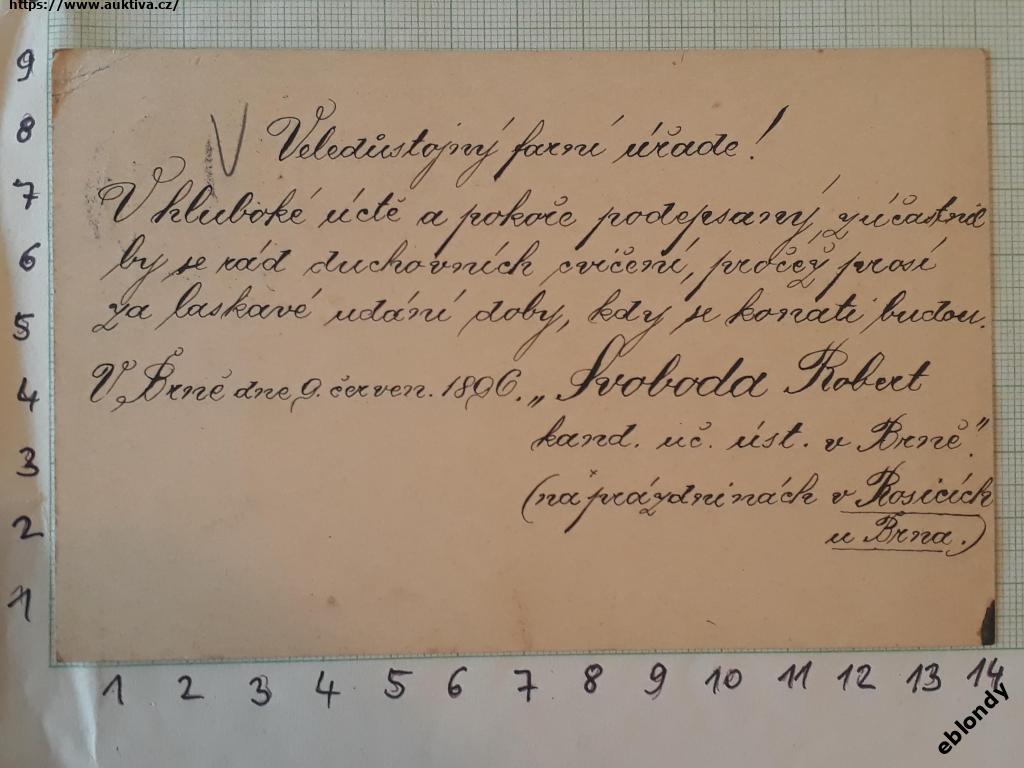 https://www.auktiva.cz/
V Veledůstojný farní úřade!
V hluboké úctě a pokoře podepsaný, zúčastnil
by se rád duchovních cvičení, pročež prosí
za laskavé udání doby, kdy se konati budou.
V Brně dne 9. červen. 1896. „Svoboda Robert
kand. uč. úst. v Brně."
(na prázdninách v Rosicích
u Brna.)
9
8
7
6
5
4
3
2
1
1 2 3 4 5 6 7 8 9 10 11 12 13 14
eblondy